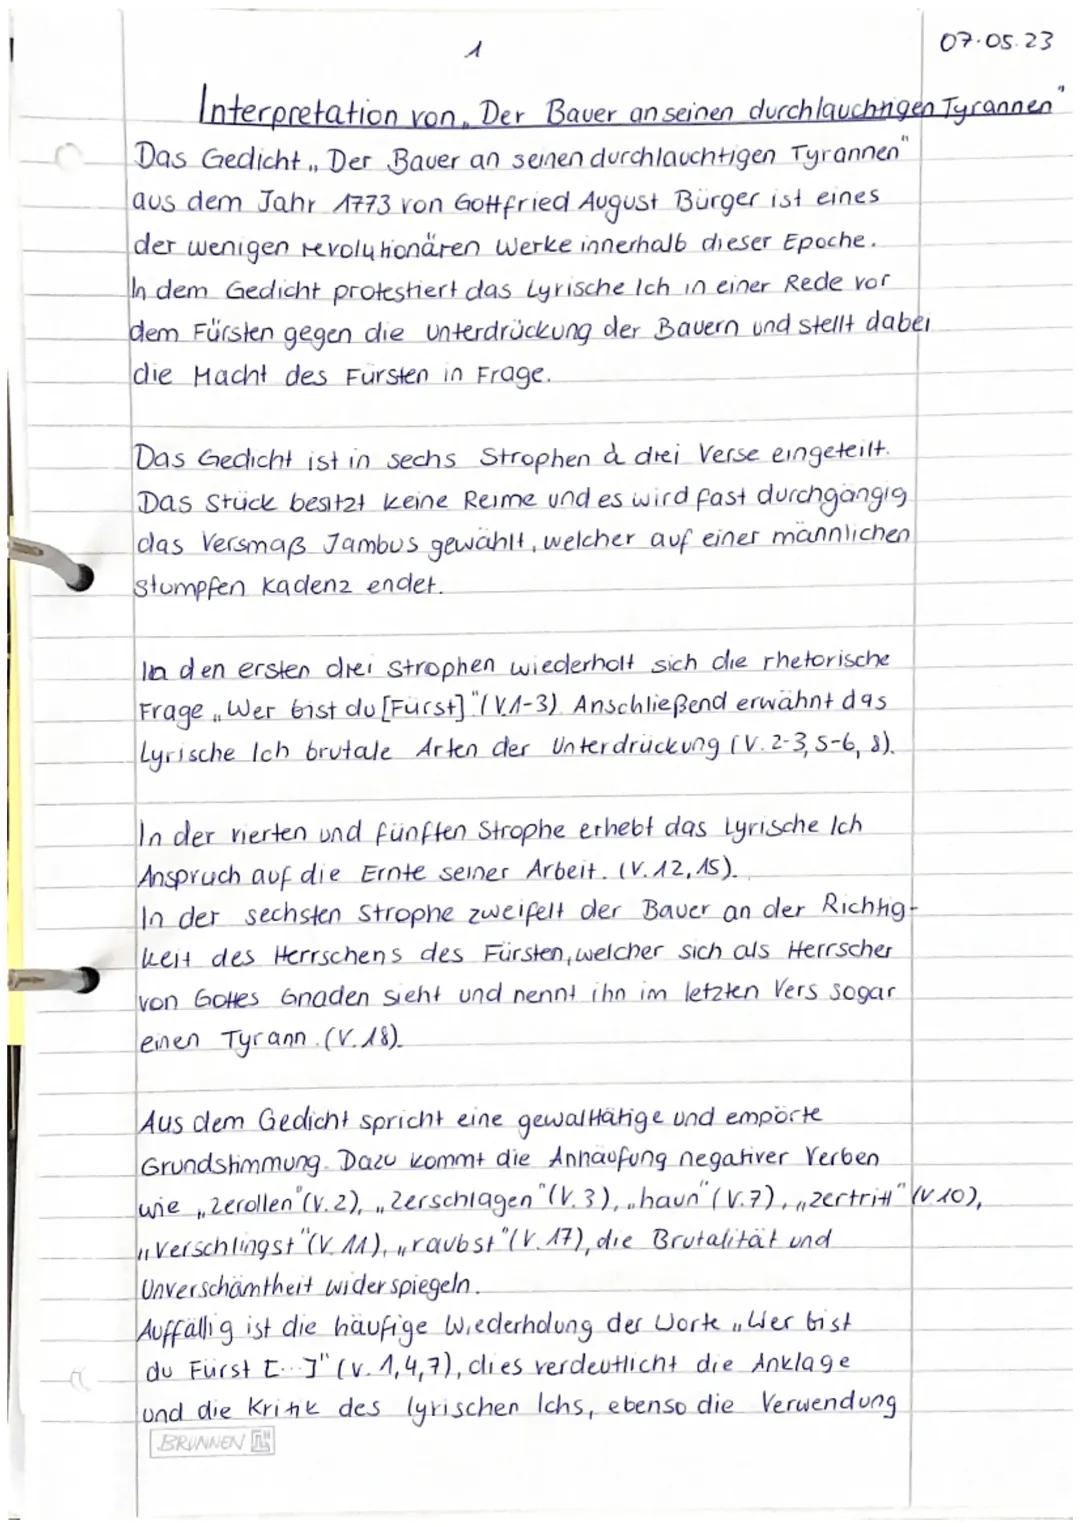 1
07.05.23
Interpretation von „Der Bauer an seinen durchlauchtigen Tyrannen"
Das Gedicht „Der Bauer an seinen durchlauchtigen Tyrannen"
aus dem Jahr 1773 von Gottfried August Bürger ist eines
der wenigen revolutionären Werke innerhalb dieser Epoche.
In dem Gedicht protestiert das Lyrische Ich in einer Rede vor
dem Fürsten gegen die Unterdrückung der Bauern und stellt dabei
die Macht des Fürsten in Frage.
Das Gedicht ist in sechs Strophen à drei Verse eingeteilt.
Das Stück besitzt keine Reime und es wird fast durchgängig
das Versmaß Jambus gewählt, welcher auf einer männlichen
stumpfen Kadenz endet.
In den ersten drei Strophen wiederholt sich die rhetorische
Frage „Wer bist du [Fürst]" (V.1-3). Anschließend erwähnt das
Lyrische Ich brutale Arten der Unterdrückung (V. 2-3, 5-6, 8).
In der vierten und fünften Strophe erhebt das Lyrische Ich
Anspruch auf die Ernte seiner Arbeit. (V. 12, 15).
In der sechsten Strophe zweifelt der Bauer an der Richtig-
keit des Herrschens des Fürsten, welcher sich als Herrscher
von Gottes Gnaden sieht und nennt ihn im letzten Vers sogar
einen Tyrann. (V. 18).
Aus dem Gedicht spricht eine gewalttätige und empörte
Grundstimmung. Dazu kommt die Anhäufung negativer Verben
wie „zerollen" (V. 2), „zerschlagen" (V. 3), „haun" (V. 7), „zertritt" (V. 10),
„verschlingst" (V. 11), „raubst" (V. 17), die Brutalität und
Unverschämtheit widerspiegeln.
Auffällig ist die häufige Wiederholung der Worte „Wer bist
du Fürst [...]" (V. 1, 4, 7), dies verdeutlicht die Anklage
und die Kritik des lyrischen Ichs, ebenso die Verwendung
BRUNNEN